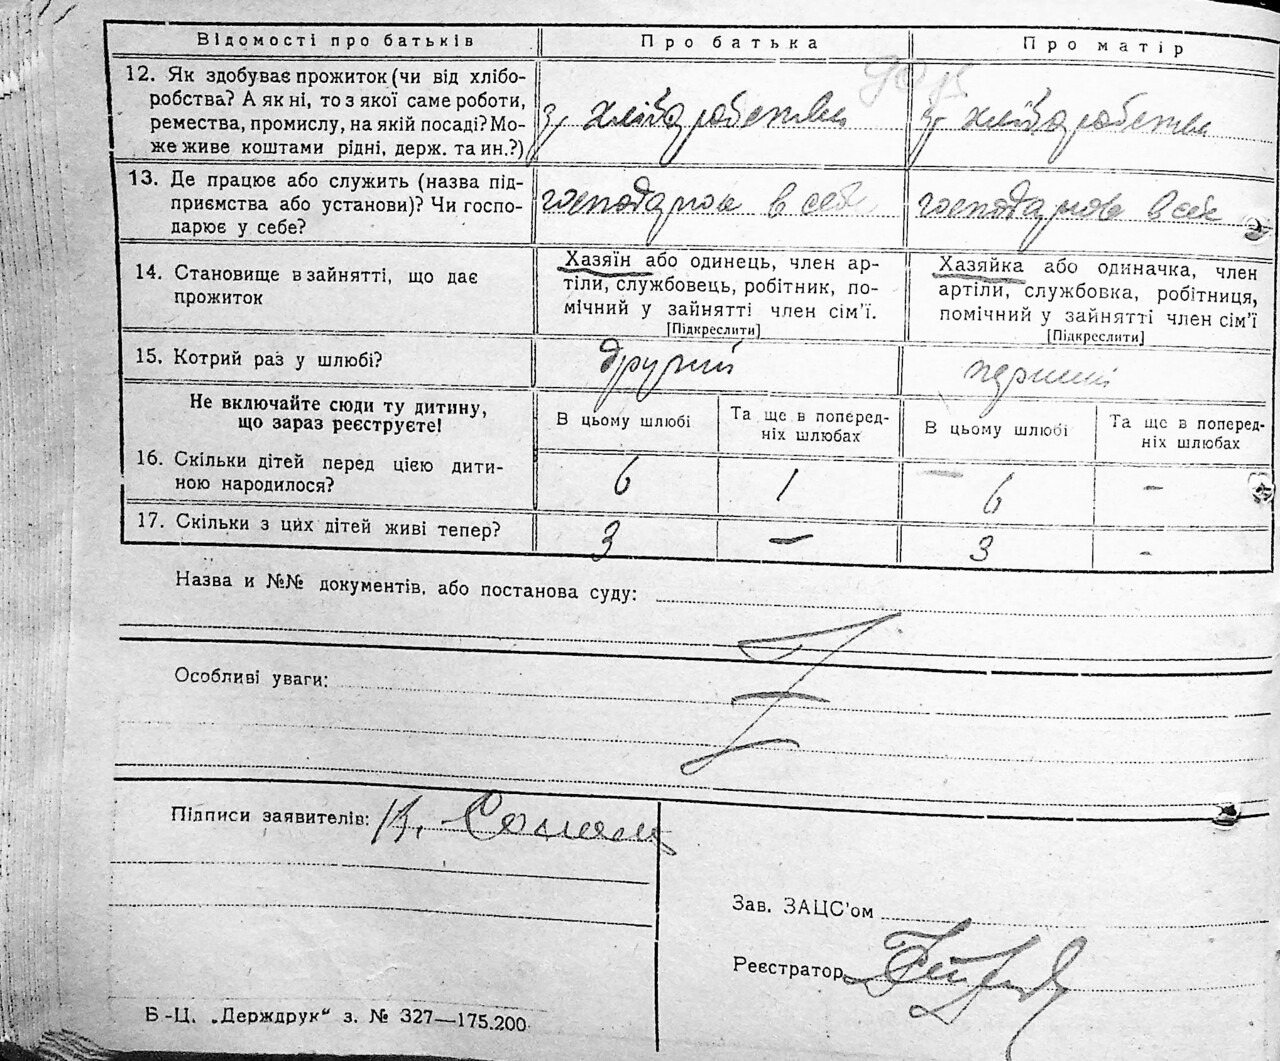 Відомості про батьків Про батька Про матір
12. Як здобуває прожиток (чи від хлібо-
робства? А як ні, то з якої саме роботи,
ремества, промислу, на якій посаді? Мо-
же живе коштами рідні, держ. та ин.?)
з хліборобства з хліборобства
13. Де працює або служить (назва під-
приємства або установи)? Чи госпо-
дарює у себе?
господарює в себе господарює в себе
14. Становище в зайнятті, що дає
прожиток
Хазяїн або одинець, член ар-
тіли, службовець, робітник, по-
мічний у зайнятті член сім'ї.
[Підкреслити]
Хазяйка або одиначка, член
артіли, службовка, робітниця,
помічний у зайнятті член сім'ї
[Підкреслити]
15. Котрий раз у шлюбі? другий перший
Не включайте сюди ту дитину,
що зараз реєструєте!
В цьому шлюбі
Та ще в поперед-
ніх шлюбах
В цьому шлюбі
Та ще в поперед-
ніх шлюбах
16. Скільки дітей перед цією дити-
ною народилося?
6 1 6 -
17. Скільки з цих дітей живі тепер? 3 - 3 -
Назва и №№ документів, або постанова суду:
Особливі уваги:
Підписи заявителів: К.
Зав. ЗАЦС'ом
Реєстратор
Б-Ц. „Держдрук“ з. № 327—175.200